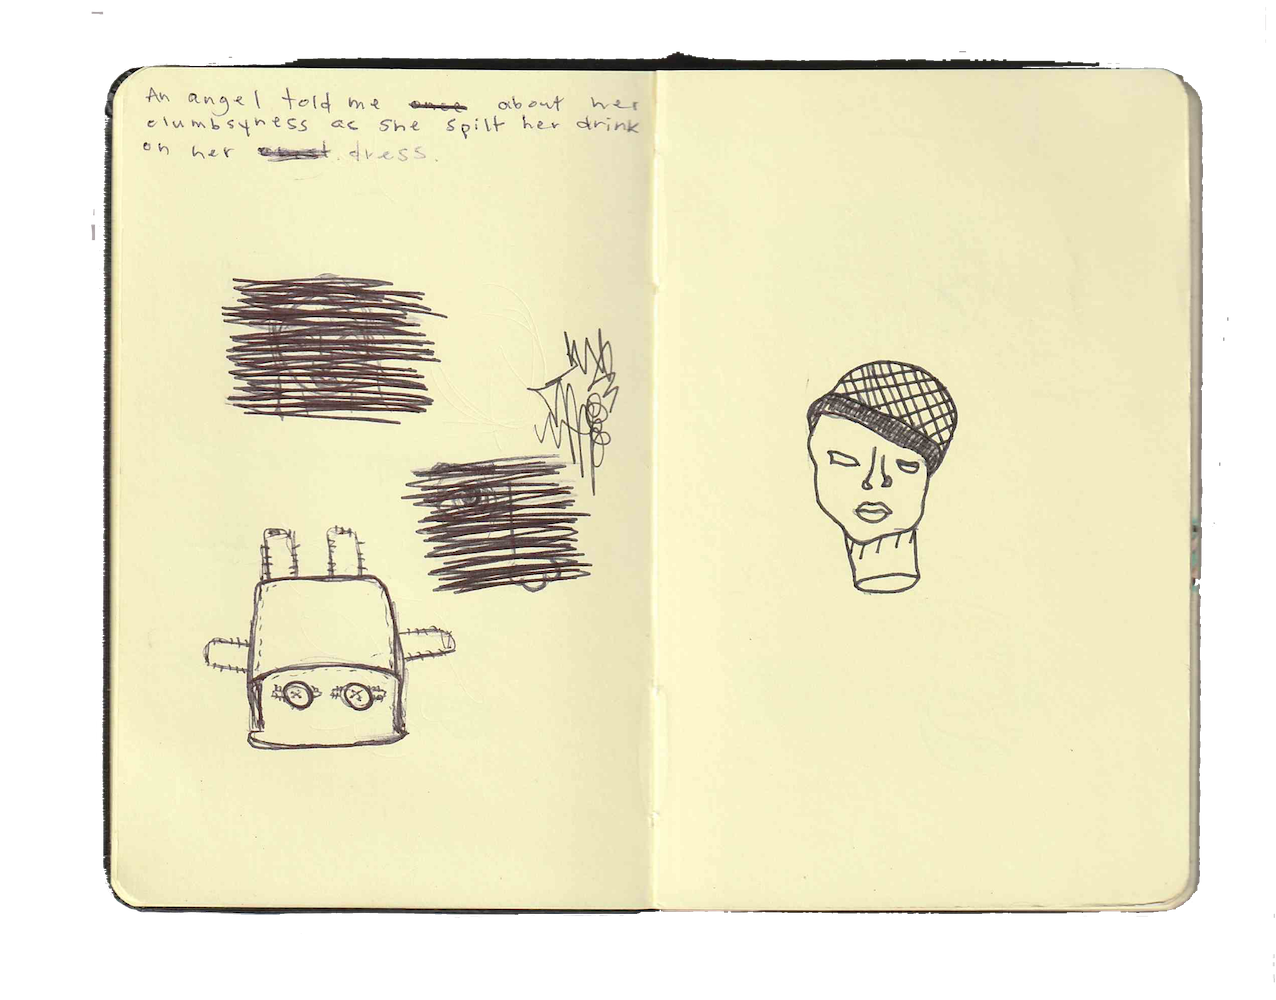 An angel told me once about her
clumbsyness as she spilt her drink
on her dress.